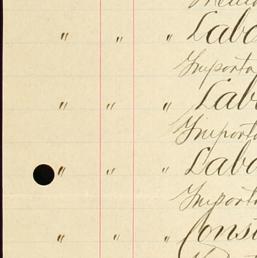 " " " Labo
Importa
" " " Lab
Importa
" " " Labo
Importa
" " " Cons